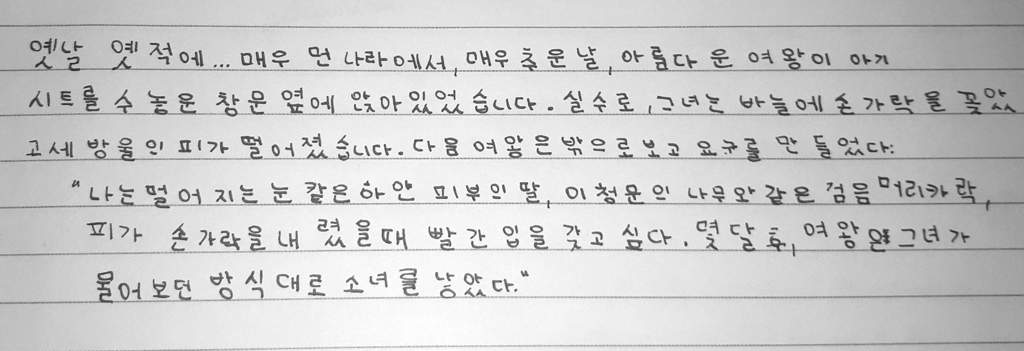 옛날 옛적에... 매우 먼 나라에서, 매우 추운 날, 아름다운 여왕이 아기
시트를 수 놓은 창문 옆에 앉아 있었습니다. 실수로, 그녀는 바늘에 손가락을 꽂았
고 세 방울의 피가 떨어졌습니다. 다음 여왕은 밖으로 보고 요구를 만들었다:
"나는 떨어지는 눈 같은 하얀 피부의 딸, 이 청문의 나무와 같은 검음 머리카락,
피가 손가락을 내렸을 때 빨간 입을 갖고 싶다. 몇 달 후, 여왕은 그녀가
물어보던 방식대로 소녀를 낳았다."